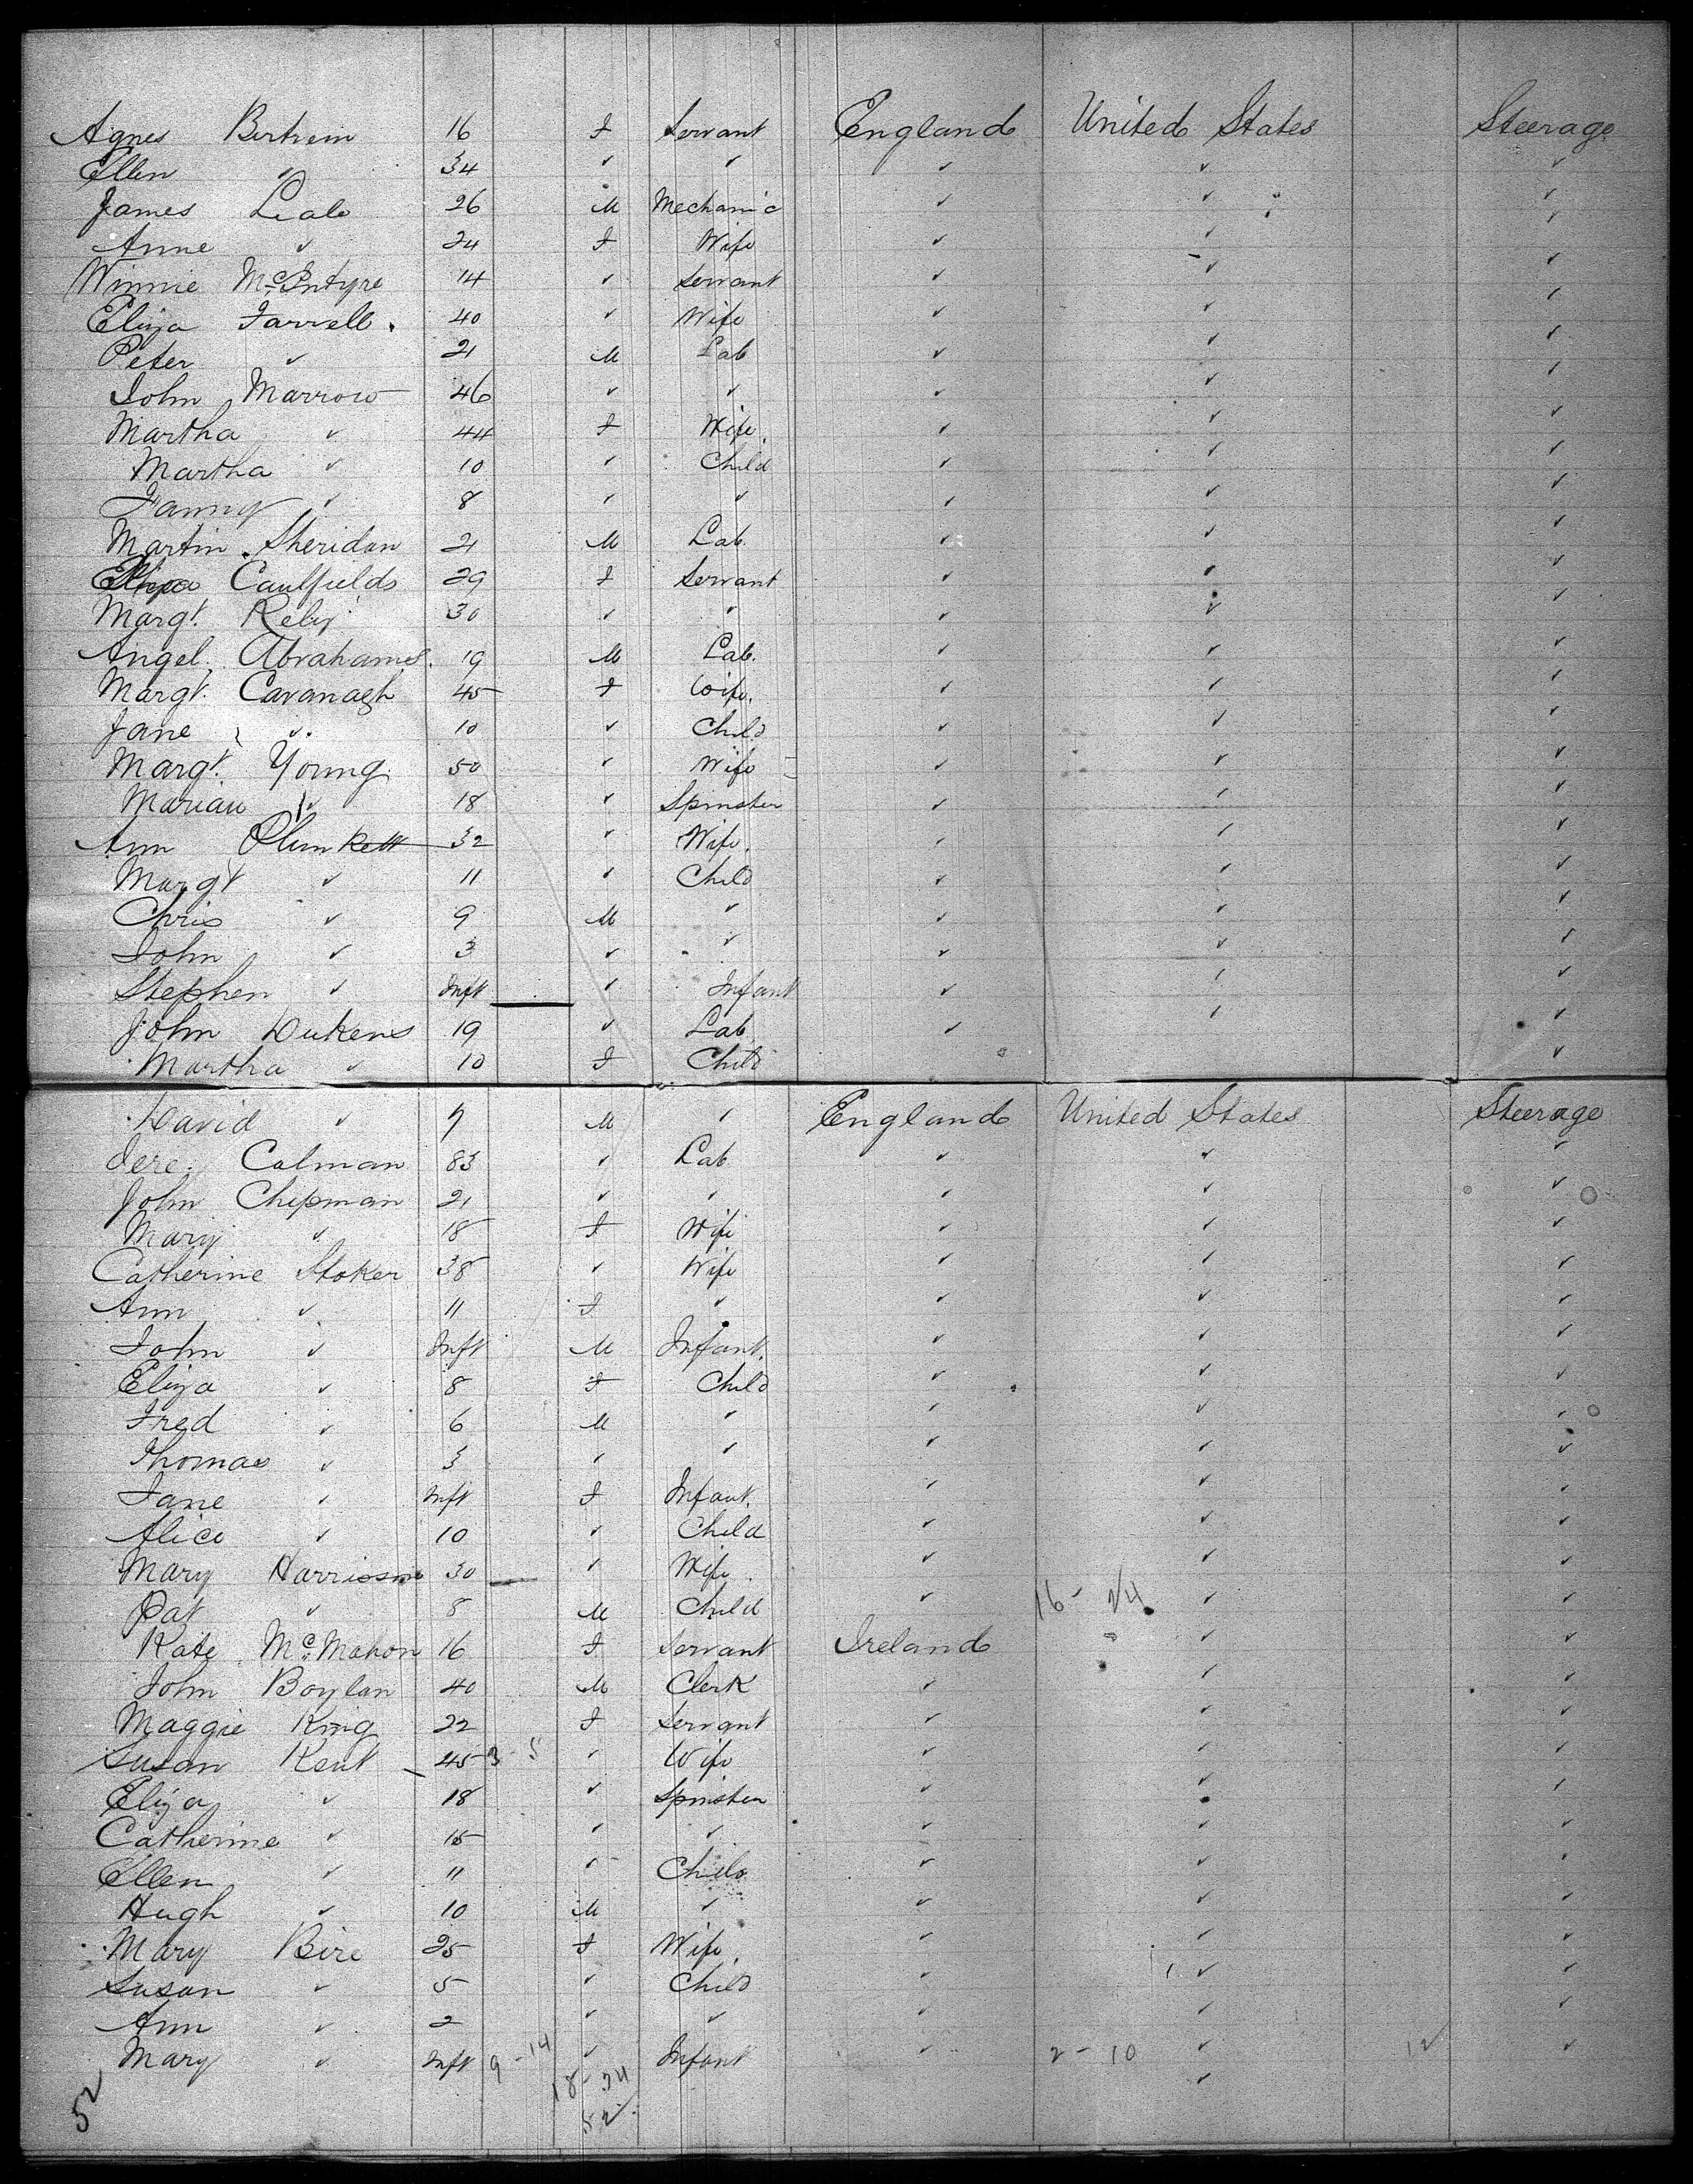 Agnes Bertrem 16 F Servant England United States Steerage
Ellen " 34 " " " " "
James Leale 26 M Mechanic " " "
Anne " 24 F Wife " " "
Winnie McIntyre 14 " Servant " " "
Eliza Farrell. 40 " Wife " " "
Peter " 21 M Lab " " "
John Marrow 46 " " " " "
Martha " 44 F Wife. " " "
Martha " 10 " Child " " "
Fanny " 8 " " " " "
Martin Sheridan 21 M Lab. " " "
Caulfields 29 F Servant " " "
Margt. Reby 30 " " " " "
Angel. Abrahams. 19 M Lab. " " "
Margt. Cavanagh 45 F Wife. " " "
Jane " 10 " Child " " "
Margt. Young 50 " Wife " " "
Marian " 18 " Spinster " " "
Ann Plunkett 32 " Wife. " " "
Margt " 11 " Child " " "
Chris " 9 M " " " "
John " 3 " " " " "
Stephen " Inft " Infant " " "
John Dukens 19 " Lab " " "
Martha " 10 F Child "
David " 7 M " England United States Steerage
Jere. Colman 83 " Lab " " "
John Chipman 21 " " " " "
Mary " 18 F Wife " " "
Catherine Stoker 38 " Wife " " "
Ann " 11 F " " " "
John " Inft M Infant. " " "
Eliza " 8 F Child " " "
Fred " 6 M " " " "
Thomas " 3 " " " " "
Jane " Inft F Infant. " " "
Alice " 10 " Child " " "
Mary Harrison 30 " Wife. " " "
Pat " 8 M Child " 16 - 24 " "
Kate McMahon 16 F Servant Ireland " "
John Boylan 40 M Clerk " " "
Maggie King 22 F Servant " " "
Susan Kent 45 3 - 5 " Wife " " "
Eliza " 18 " Spinster " " "
Catherine " 15 " " " " "
Ellen " 11 " Child " " "
Hugh " 10 M " " " "
Mary Bire 25 F Wife. " " "
Susan " 5 " Child " " "
Ann " 2 " " " " "
Mary " Inft 9 - 14 " Infant " 2 - 10 " 12 "
52 18 - 24 "
52